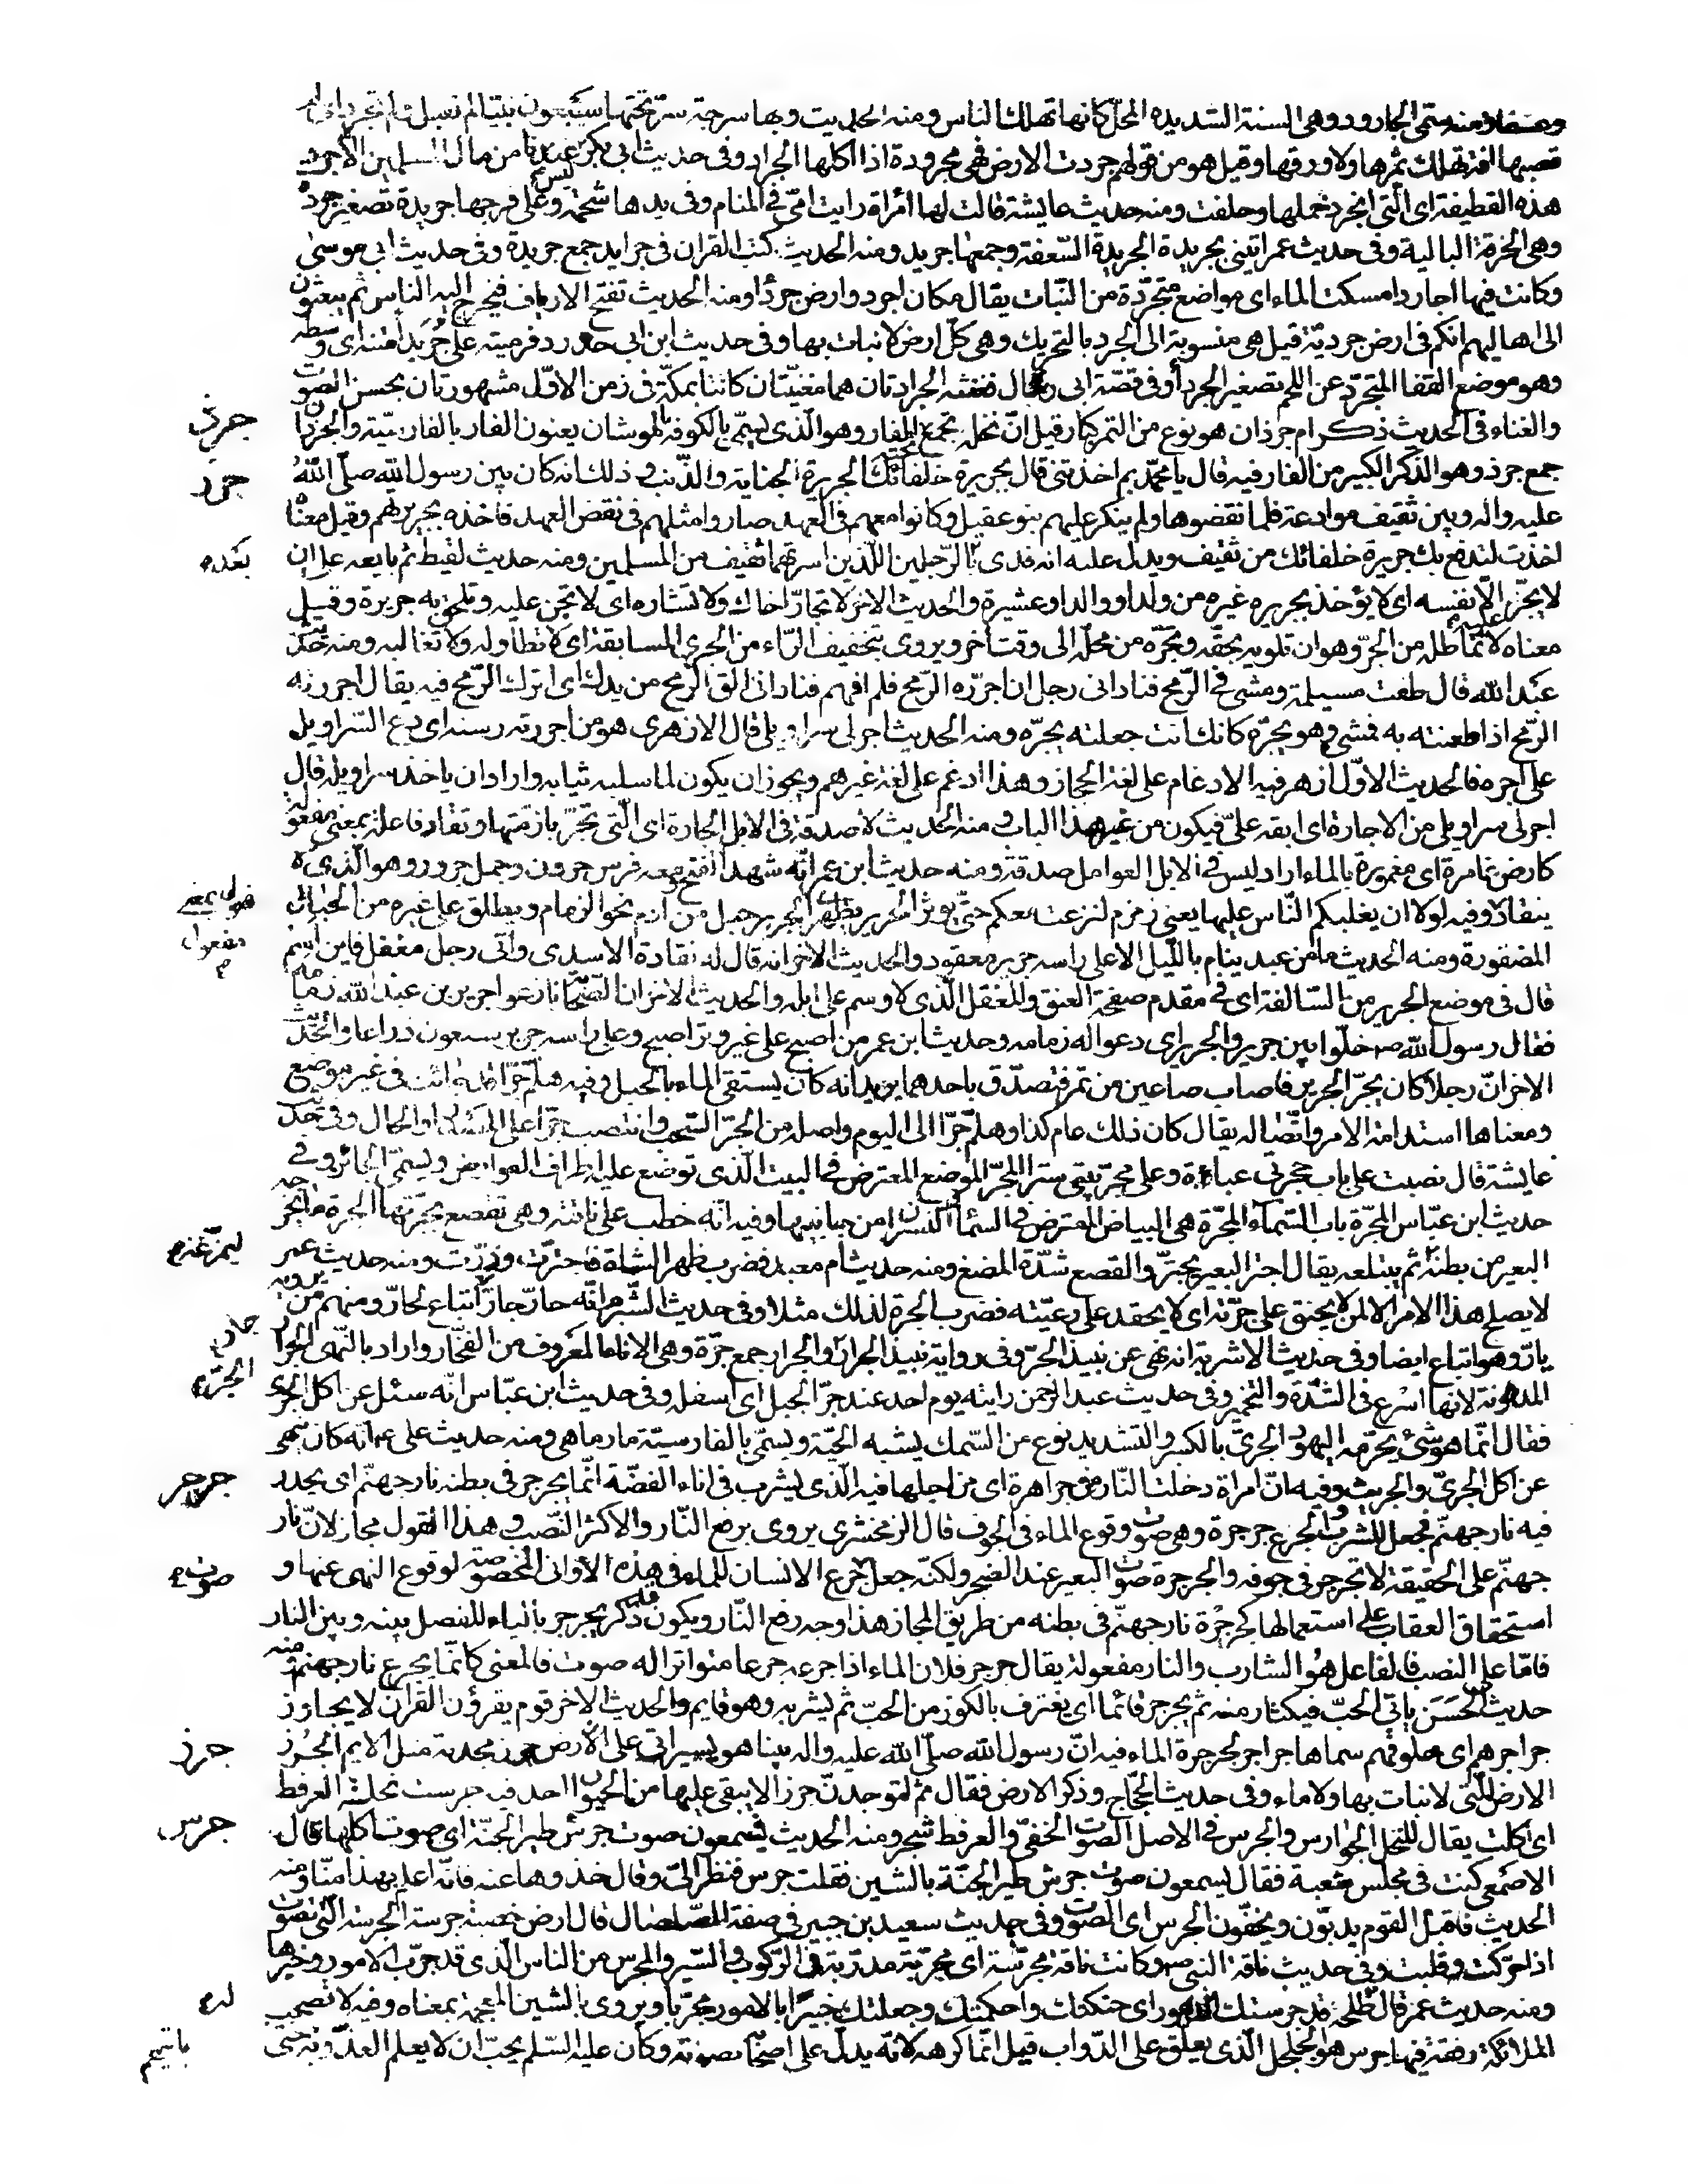 ومنه سمّى الجارود وهى السنة الشديدة المحل كانها تهلك الناس ومنه الحديث وبها سرحة سرّ تحتها سبعون نبيّا لم تعبل ولم تجرد اى لم
قصبها افة تهلك ثمرها ولا ورقها وقيل هو من قولهم جردت الارض فهى مجرودة اذا اكلها الجراد وفى حديث ابى بكر ليس عندنا من مال المسلمين الا جرد
هذه القطيفة اى الّتى انجرد خملها وخلقت ومنه حديث عايشة قالت لها امراة رايت امّى فى المنام وفى يدها شحمة وعلى فرجها جريدة تصغير جردة
وهى الخرقة البالية وفى حديث عمر ائتينى بجريدة الجريدة السّعفة وجمعها جريد ومنه الحديث كتب القران فى جرايد جمع جريدة وفى حديث ابى موسى
وكانت فيها اجارد امسكت الماء اى مواضع متجرّدة من النّبات يقال مكان اجرد وارض جرداء ومنه الحديث تفتح الارياف فيخرج اليها الناس ثم يبعثون
الى اهاليهم انكم فى ارض جرديّة قيل هى منسوبة الى الجرد بالتحريك وهى كلّ ارض لا نبات بها وفى حديث ابن ابى حدرد فرميته على جريداء متنه اى وسطه
وهو موضع القفا المتجرّد عن اللحم تصغير الجرداء وفى قصّة ابى رغال فغنته الجرادتان هما مغنيّتان كانتا بمكّة فى زمن الاوّل مشهورتان بحسن الصوت
والغناء فى الحديث ذكر ام جرذان هو نوع من التمر كبار قيل انّ نخله يجتمع تحته الفار وهو الّذى يسمّى بالكوفة بالموشان يعنون الفار بالفارسيّة والجرذان
جرذ
جمع جرذ وهو الذّكر الكبير من الفار فيه قال يا محمّد بم اخذتنى قال بجريرة حلفائك الجريرة الجناية والذّنب وذلك انه كان بين رسول الله صلّى الله
جرر
عليه واله وبين ثقيف موادعة فلما نقضوها ولم ينكر عليهم بنو عقيل وكانوا معهم فى العهد صاروا مثلهم فى نقض العهد فاخذه بجريرتهم وقيل معناه
اخذت لتدفع بك جريرة حلفائك من ثقيف ويدل عليه انه فدى بالرّجلين اللّذين اسرتهما ثقيف من المسلمين ومنه حديث لقيط ثم بايعه على ان
بعده
لا يجرّ الّا نفسه اى لا يؤخذ بجريرة غيره من ولد او والد او عشيرة والحديث الاخر لا تجارّ اخاك ولا تشاره اى لا تجن عليه وتلحق به جريرة وقيل
معناه لا تماطله من الجرّ وهو ان تلويه بحقّه وتجرّه من محلّه الى وقت اخر ويروى بتخفيف الرّاء من الجرى المسابقة اى لا تطاوله ولا تغالبه ومنه حديث
عبد الله قال طعنت مسيلمة ومشى فى الرّمح فنادانى رجل ان اجرره الرّمح فلم افهم فنادانى الق الرّمح من يدك اى اترك الرّمح فيه يقال اجررته
الرّمح اذا طعنته به فمشى وهو يجرّه كانك انت جعلته يجرّه ومنه الحديث اجر لى سراويلى قال الازهرى هو من اجررته رسنه اى دع السّراويل
علىّ اجره فالحديث الاوّل اظهر فيه الادغام على لغة الحجاز وهذا ادغم على لغة غيرهم ويجوز ان يكون لما سلبه ثيابه واراد ان ياخذ سراويله قال
اجر لى سراويلى من الاجارة اى ابقه علىّ فيكون من غير هذا الباب ومنه الحديث لا صدقة فى الابل الجارة اى الّتى تجرّ بازمّتها وتقاد فاعلة بمعنى مفعولة
كارض غامرة اى مغمورة بالماء اراد ليس فى الابل العوامل صدقة ومنه حديث ابن عمر انّه شهد الفتح ومعه فرس حرون وجمل جرور وهو الّذى لا
ينقاد وفيه لولا ان يغلبكم النّاس عليها يعنى زمزم لنزعت معكم حتّى يؤثر الجرير بظهرى الجرير حبل من ادم نحو الزمام ويطلق على غيره من الحبال
فعول بمعنى مفعول
المضفورة ومنه الحديث ما من عبد ينام بالليل الا على راسه جرير معقود والحديث الاخر انه قال له نقادة الاسدى وانّى رجل مغفل فاين اسم
قال فى موضع الجرير من السّالفة اى فى مقدم صفحة العنق والمغفل الّذى لا وسم على ابله والحديث الاخر انّ الصّحابة نازعوا جرير بن عبد الله زمامه
فقال رسول الله ص خلّوا بين جرير والجرير اى دعوا له زمامه وحديث ابن عمر من اصبح على غير وتر اصبح وعلى راسه جرير سبعون ذراعا والحديث
الاخر انّ رجلا كان يجرّ الجرير فاصاب صاعين من تمر فتصدّق باحدهما يريد انه كان يستقى الماء بالحبل وفيه هلمّ جرّا قد جائت فى غير موضع
ومعناها استدامة الامر واتّصاله يقال كان ذلك عام كذا وهلمّ جرّا الى اليوم واصله من الجرّ السّحب وانتصب جرّا على المصدر او الحال وفى حديث
عايشة قال نصبت على باب حجرتى عباءة وعلى مجرّ بيتى سترا المجرّ الموضع المعترض فى البيت الّذى توضع عليه اطراف العوارض ويسمّى الجائز وفى
حديث ابن عبّاس المجرّة باب السّماء المجرّة هى البياض المعترض فى السّماء والنسران من جانبيها وفيه انّه خطب على ناقته وهى تقصع بجرّتها الجرة ما يخرجه
البعير من بطنه ثم يبتلعه يقال اجترّ البعير يجترّ والقصع شدّة المضغ ومنه حديث ام معبد فضرب ظهر الشاة فاجترّت ودرّت ومنه حديث عمر
ليمرّغنه
لا يصلح هذا الامر الا لمن لا يحنق على جرّته اى لا يحقد على رعيّته فضرب الجرة لذلك مثلا وفى حديث الشّبرم انّه حارّ جارّ اتباع لحارّ ومنهم من يرويه
يارّ وهو اتباع ايضا وفى حديث الاشربة انه نهى عن نبيذ الجرّ وفى رواية نبيذ الجرار والجرّ والجرار جمع جرّة وهى الاناء المعروف من الفخّار واراد بالنّهى الجرار
جار
المدهونة لانها اسرع فى الشدّة والتخمير وفى حديث عبد الرّحمن رايته يوم احد عند جرّ الجبل اى اسفله وفى حديث ابن عبّاس انّه سئل عن اكل الجرّى
الجرّى
فقال انّما هو شىء يحرّمه اليهود الجرّىّ بالكسر والتشديد نوع من السّمك يشبه الحيّة ويسمّى بالفارسيّة مارماهى ومنه حديث على ع انّه كان ينهى
عن اكل الجرّىّ والجرّيث وفيه انّ امراة دخلت النّار من جرا هرة اى من اجلها فيه الّذى يشرب فى اناء الفضّة انّما يجرجر فى بطنه نار جهنّم اى يحدر
جرجر
فيه نار جهنّم فجعل الشرب والجرع جرجرة وهى صوت وقوع الماء فى الجوف قال الزمخشرى يروى برفع النّار والاكثر النّصب وهذا القول مجاز لانّ نار
جهنّم على الحقيقة لا تجرجر فى جوفه والجرجرة صوت البعير عند الضّجر ولكنّه جعل جرع الانسان للماء فى هذه الاوانى المخصوصة لوقوع النهى عنها و
صوت
استحقاق العقاب على استعمالها كجرجرة نار جهنّم فى بطنه من طريق المجاز هذا وجه رفع النّار ويكون قد ذكر يجرجر بالياء للفصل بينه وبين النار
فامّا على النصب فالفاعل هو الشارب والنار مفعولة يقال جرجر فلان الماء اذا جرعه جرعا متواترا له صوت فالمعنى كانّما يجرع نار جهنم ومنه
حديث الحسن ياتى الحبّ فيكتار منه ثم يجرجر قائما اى يغترف بالكوز من الحبّ ثم يشربه وهو قايم والحديث الاخر قوم يقرؤن القران لا يجاوز
جراجرهم اى حلوقهم سماها جراجر لجرجرة الماء فيه انّ رسول الله صلّى الله عليه واله بينا هو يسير اتى على الارض جرز مجدبة مثل الايم الجرز
جرز
الارض الّتى لا نبات بها ولا ماء وفى حديث الحجّاج وذكر الارض فقال ثم لتوجدنّ جرزا لا يبقى عليها من الحيوان احد فيه جرست نحله العرفط
اى اكلت يقال للنحل الجوارس والجرس فى الاصل الصّوت الخفىّ والعرفط شجر ومنه الحديث فيسمعون صوت جرش طير الجنّة اى صوت اكلها قال
جرس
الاصمعى كنت فى مجلس شعبة فقال يسمعون صوت جرش طير الجنّة بالشين فقلت جرس فنظر الىّ وقال خذوها عنه فانّه اعلم بهذا منّا ومنه
الحديث فاقبل القوم يدبّون ويخفون الجرس اى الصّوت وفى حديث سعيد بن جبير فى صفة الصلصال قال ارض خصبة جرسة الجرسة الّتى تصوّت
اذا حركت وقلبت وفى حديث ناقة النبى ص وكانت ناقة مجرّسة اى مجرّبة مدرّبة فى الرّكوب والسّير والمجرس من الناس الّذى قد جرّب الامور وخبرها
ومنه حديث عمر قال طلحة قد جرستك الدّهور اى حنكتك واحكمتك وجعلتك خبيرًا بالامور مجرّبا ويروى بالشين المعجمة بمعناه وفيه لا تصحب
له
الملائكة رفقة فيها جرس هو الجلجل الّذى يعلّق على الدّواب قيل انّما كرهه لانّه يدلّ على اصحابه بصوته وكان عليه السّلم يحبّ ان لا يعلم العدوّ به حتى
ياتيهم